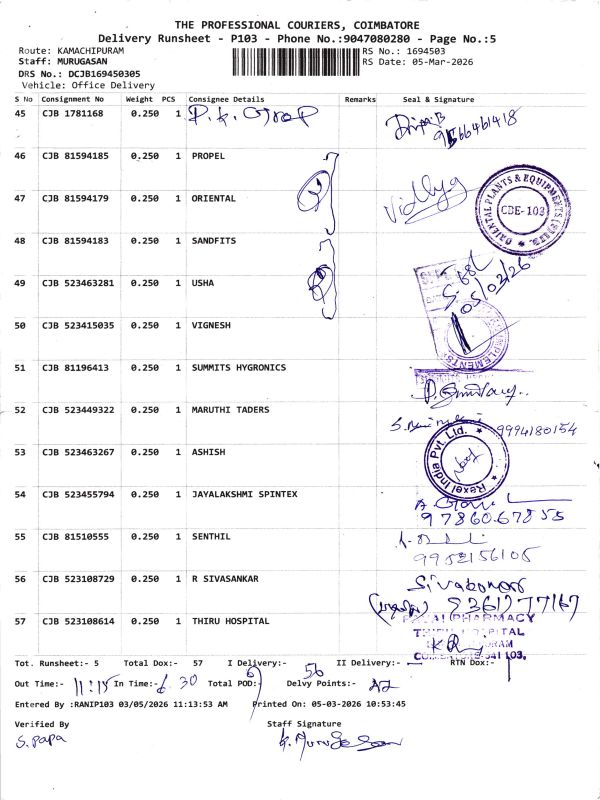 THE PROFESSIONAL COURIERS, COIMBATORE
Delivery Runsheet - P103 - Phone No.:9047080280 - Page No.:5
Route: KAMACHIPURAM RS No.: 1694503
Staff: MURUGASAN RS Date: 05-Mar-2026
DRS No.: DCJB169450305
Vehicle: Office Delivery
S No Consignment No Weight PCS Consignee Details Remarks Seal & Signature
45 CJB 1781168 0.250 1 P.K. Group
46 CJB 81594185 0.250 1 PROPEL
47 CJB 81594179 0.250 1 ORIENTAL Vidhya
ORIENTAL PLANTS & EQUIPMENTS (P) LTD.
CBE-103
48 CJB 81594183 0.250 1 SANDFITS
49 CJB 523463281 0.250 1 USHA
50 CJB 523415035 0.250 1 VIGNESH
51 CJB 81196413 0.250 1 SUMMITS HYGRONICS
52 CJB 523449322 0.250 1 MARUTHI TADERS 9994180154
53 CJB 523463267 0.250 1 ASHISH
Rexel India Pvt. Ltd.
54 CJB 523455794 0.250 1 JAYALAKSHMI SPINTEX
97860 67855
55 CJB 81510555 0.250 1 SENTHIL
9952156105
56 CJB 523108729 0.250 1 R SIVASANKAR
57 CJB 523108614 0.250 1 THIRU HOSPITAL
PHARMACY
Tot. Runsheet:- 5 Total Dox:- 57 I Delivery:- 56 II Delivery:- RTN Dox:- 1
Out Time:- 11:15 In Time:- 6.30 Total POD: Delvy Points:-
Entered By :RANIP103 03/05/2026 11:13:53 AM Printed On: 05-03-2026 10:53:45
Verified By Staff Signature
S. Papa